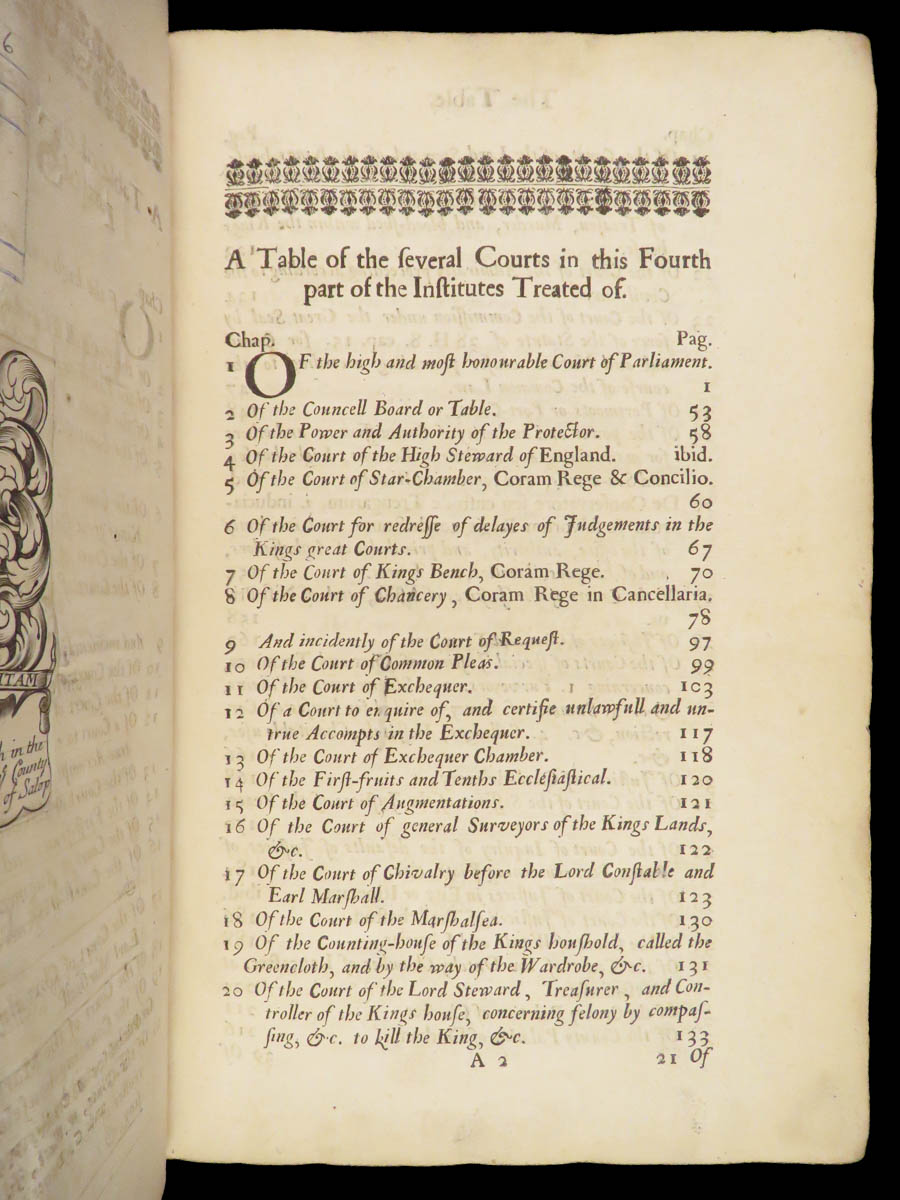 A Table of the ſeveral Courts in this Fourth
part of the Inſtitutes Treated of.
Chap. Pag.
1 OF the high and moſt honourable Court of Parliament.
1
2 Of the Councell Board or Table. 53
3 Of the Power and Authority of the Protector. 58
4 Of the Court of the High Steward of England. ibid.
5 Of the Court of Star-Chamber, Coram Rege & Concilio.
60
6 Of the Court for redreſſe of delayes of Judgements in the
Kings great Courts. 67
7 Of the Court of Kings Bench, Coram Rege. 70
8 Of the Court of Chancery, Coram Rege in Cancellaria.
78
9 And incidently of the Court of Requeſt. 97
10 Of the Court of Common Pleas. 99
11 Of the Court of Exchequer. 103
12 Of a Court to enquire of, and certifie unlawfull and un-
true Accompts in the Exchequer. 117
13 Of the Court of Exchequer Chamber. 118
14 Of the Firſt-fruits and Tenths Eccleſiaſtical. 120
15 Of the Court of Augmentations. 121
16 Of the Court of general Surveyors of the Kings Lands,
&c. 122
17 Of the Court of Chivalry before the Lord Conſtable and
Earl Marſhall. 123
18 Of the Court of the Marſhalſea. 130
19 Of the Counting-houſe of the Kings houſhold, called the
Greencloth, and by the way of the Wardrobe, &c. 131
20 Of the Court of the Lord Steward, Treaſurer, and Con-
troller of the Kings houſe, concerning felony by compaſ-
ſing, &c. to kill the King, &c. 133
A 2 21 Of
ITAM
in the
County
of Salop